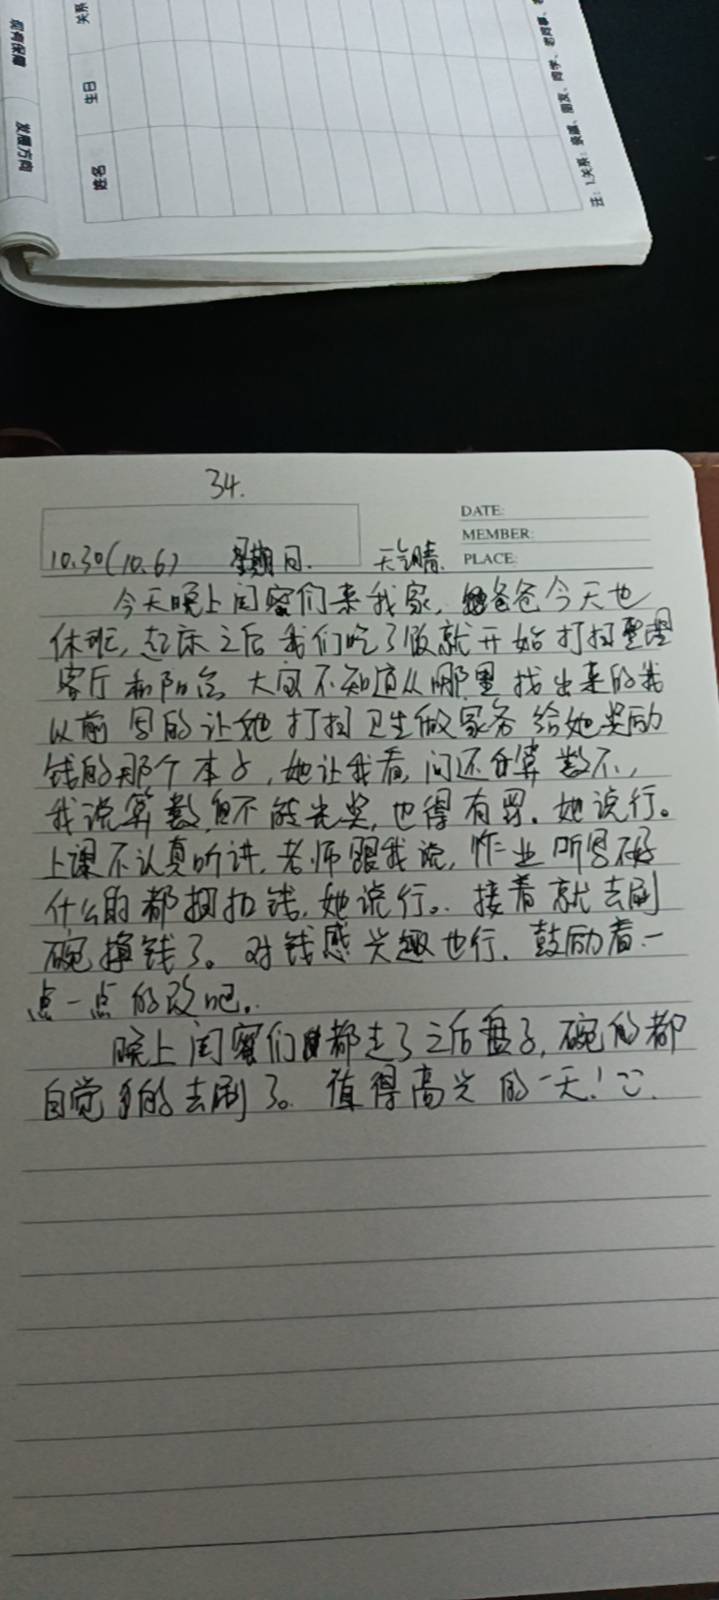 关系
生日
姓名
发展方向
34.
DATE:
MEMBER:
10.30(10.6) 星期日. 天气晴.
PLACE:
今天晚上闺蜜们来我家, 她爸爸今天也
休班, 起床之后我们吃了饭就开始打扫整理
客厅和阳台 大 不知道从哪里找出来的我
以前写的让她打扫卫生做家务给她奖励
钱的那个本子, 她让我看, 问还 算数不,
我说算数, 但不能光奖, 也得有罚. 她说行。
上课不认真听讲, 老师跟我说, 作业 写不好
什么的都 扣钱, 她说行。 接着就去刷
碗挣钱了。 对钱感兴趣也行, 鼓励着一
点一点的改吧。
晚上闺蜜们都走了之后盘子, 碗的都
自觉的去刷了。 值得高兴的一天!